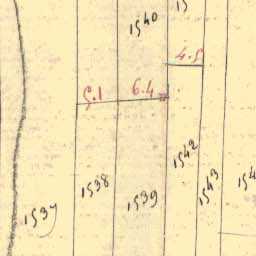 1540
4.5
5.1
6.4
1542
1538
1539
1543
1537